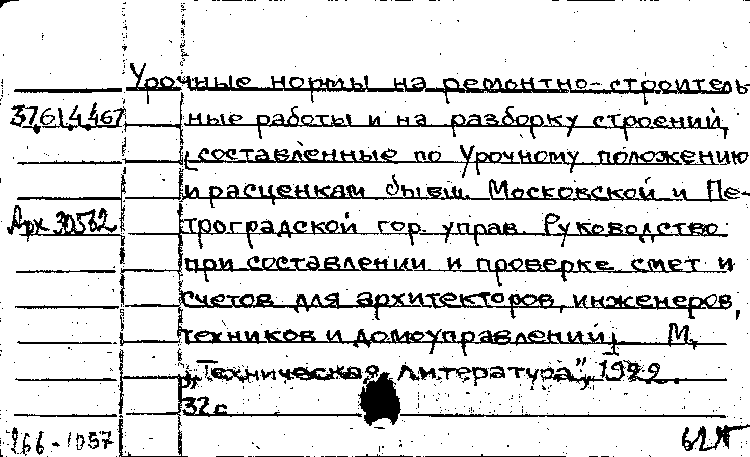 Урочные нормы на ремонтно-строитель
37.614.467 ные работы и на разборку строений,
составленные по Урочному положению
и расценкам бывш. Московской и Пе-
Арх 30582 троградской гор. управ. Руководство
при составлении и проверке смет и
счетов для архитекторов, инженеров,
техников и домоуправлений. М,
"Техническая литература", 1922.
32 с
266-1057